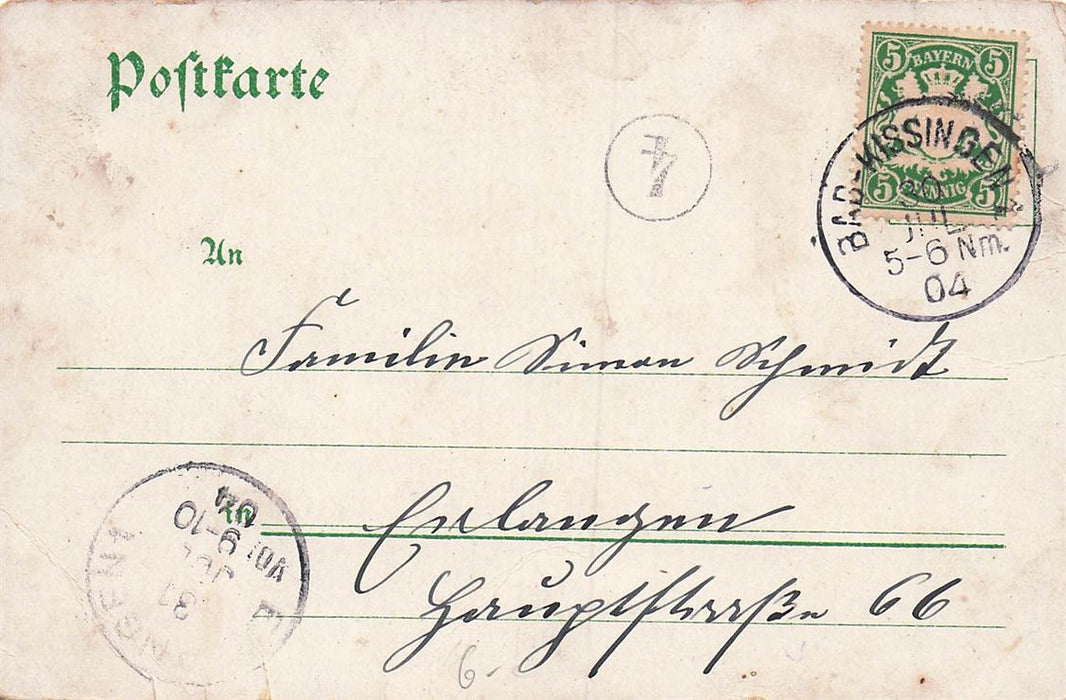 Postkarte
5 BAYERN 5
5 PFENNIG 5
BAD-KISSINGEN
30
JUL
5-6 Nm.
04
4
An
Familie Simon Schmidt
in Erlangen
Hauptstraße 66
ERLANGEN 1
31
JUL
VOR 9-10
04
6